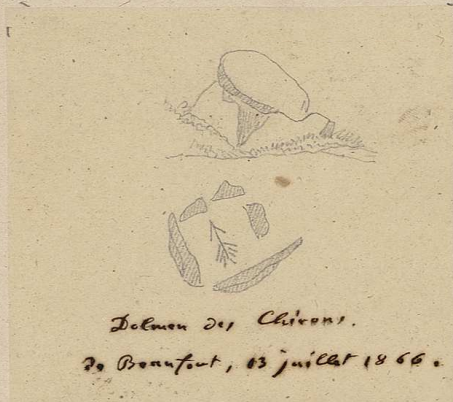 Dolmen des Chirons.
de Beaufort, 13 juillet 1866.